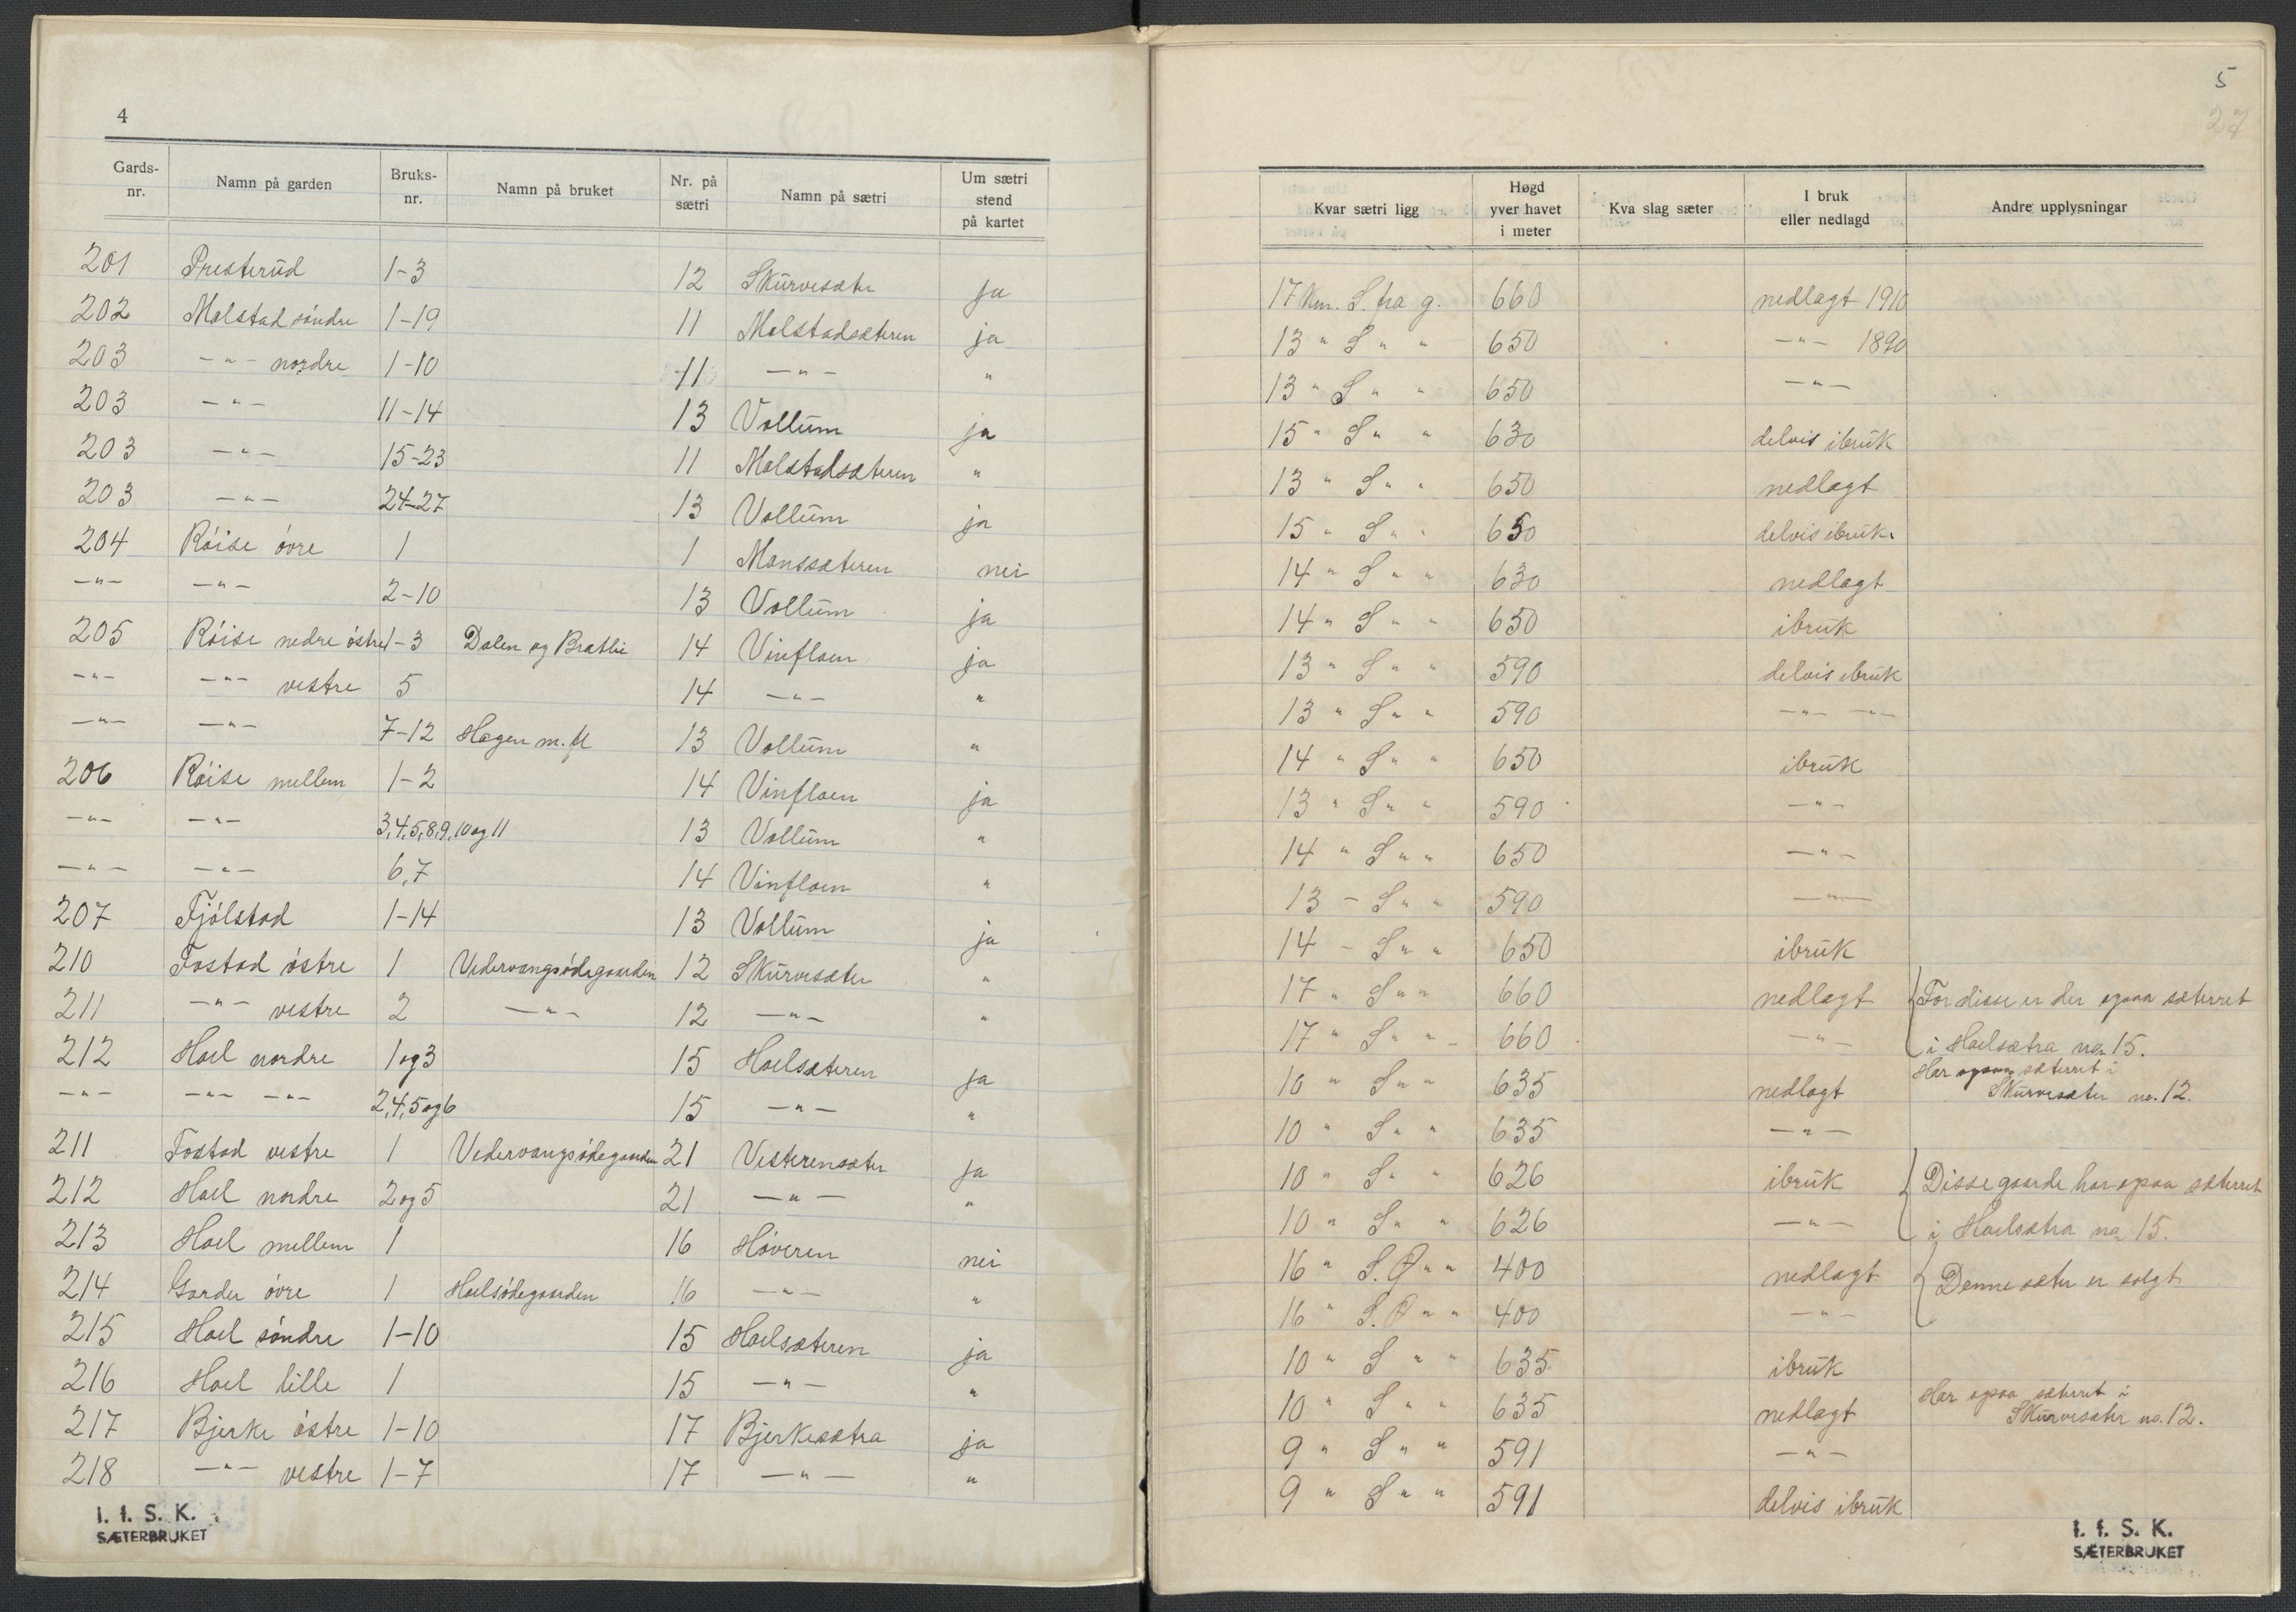 4
Gards-nr. | Namn på garden | Bruks-nr. | Namn på bruket | Nr. på sætri | Namn på sætri | Um sætri stend på kartet
201 Presterud 1-3 12 Skurvesæter ja
202 Malstad søndre 1-19 11 Malstadsæteren ja
203 -"- nordre 1-10 11 -"- "
203 -"- 11-14 13 Vollum ja
203 -"- 15-23 11 Malstadsæteren "
203 -"- 24-27 13 Vollum ja
204 Røise øvre 1 1 Monssæteren nei
-"- -"- 2-10 13 Vollum ja
205 Røise nedre østre 1-3 Dalen og Bratlie 14 Vinfloen ja
-"- -"- vestre 5 14 -"- "
-"- -"- 7-12 Hagen m.fl 13 Vollum "
206 Røise mellem 1-2 14 Vinfloen ja
-"- -"- 3,4,5,8,9,10 og 11 13 Vollum "
-"- -"- 6,7 14 Vinfloen "
207 Fjølstad 1-14 13 Vollum ja
210 Fostad østre 1 Vedervangsødegaarden 12 Skurvesæter "
211 -"- vestre 2 -"- 12 -"- "
212 Hoel nordre 1 og 3 15 Hoelsæteren ja
-"- -"- -"- 2,4,5 og 6 15 -"- "
211 Fostad vestre 1 Vedervangsødegaarden 21 Vesterensæter ja
212 Hoel nordre 2 og 5 21 -"- "
213 Hoel mellem 1 16 Høveren nei
214 Garder øvre 1 Hoelsødegaarden 16 -"- "
215 Hoel søndre 1-10 15 Hoelsæteren ja
216 Hoel lille 1 15 -"- "
217 Bjerke østre 1-10 17 Bjerkesætra ja
218 -"- vestre 1-7 17 -"- "
I. f. S. K.
SÆTERBRUKET
5
27
Kvar sætri ligg | Høgd yver havet i meter | Kva slag sæter | I bruk eller nedlagd | Andre upplysningar
17 Km. S. fra g. 660 nedlagt 1910
13 " S " " 650 -"- 1890
13 " S " " 650 -"-
15 " S " " 630 delvis ibruk
13 " S " " 650 nedlagt
15 " S " " 650 delvis ibruk
14 " S " " 630 nedlagt
14 " S " " 650 ibruk
13 " S " " 590 delvis ibruk
13 " S " " 590 -"- -"-
14 " S " " 650 ibruk
13 " S " " 590 -"-
14 " S " " 650 -"-
13 - S " " 590 -"-
14 - S " " 650 ibruk
17 " S " " 660 nedlagt For disse er der ogsaa sæterret
17 " S " " 660 -"- i Hoelsætra no 15.
10 " S " " 635 nedlagt Har ogsaa sæterret i
Skurvesæter no. 12.
10 " S " " 635 -"-
10 " S " " 626 ibruk Disse gaarde har ogsaa sæterret
10 " S " " 626 -"- i Hoelsætra no 15.
16 " S.Ø " " 400 nedlagt Denne sæter er solgt
16 " S.Ø " " 400 -"-
10 " S " " 635 ibruk
10 " S " " 635 nedlagt Har ogsaa sæterret i
Skurvesæter no. 12.
9 " S " " 591 -"-
9 " S " " 591 delvis ibruk
I. f. S. K.
SÆTERBRUKET